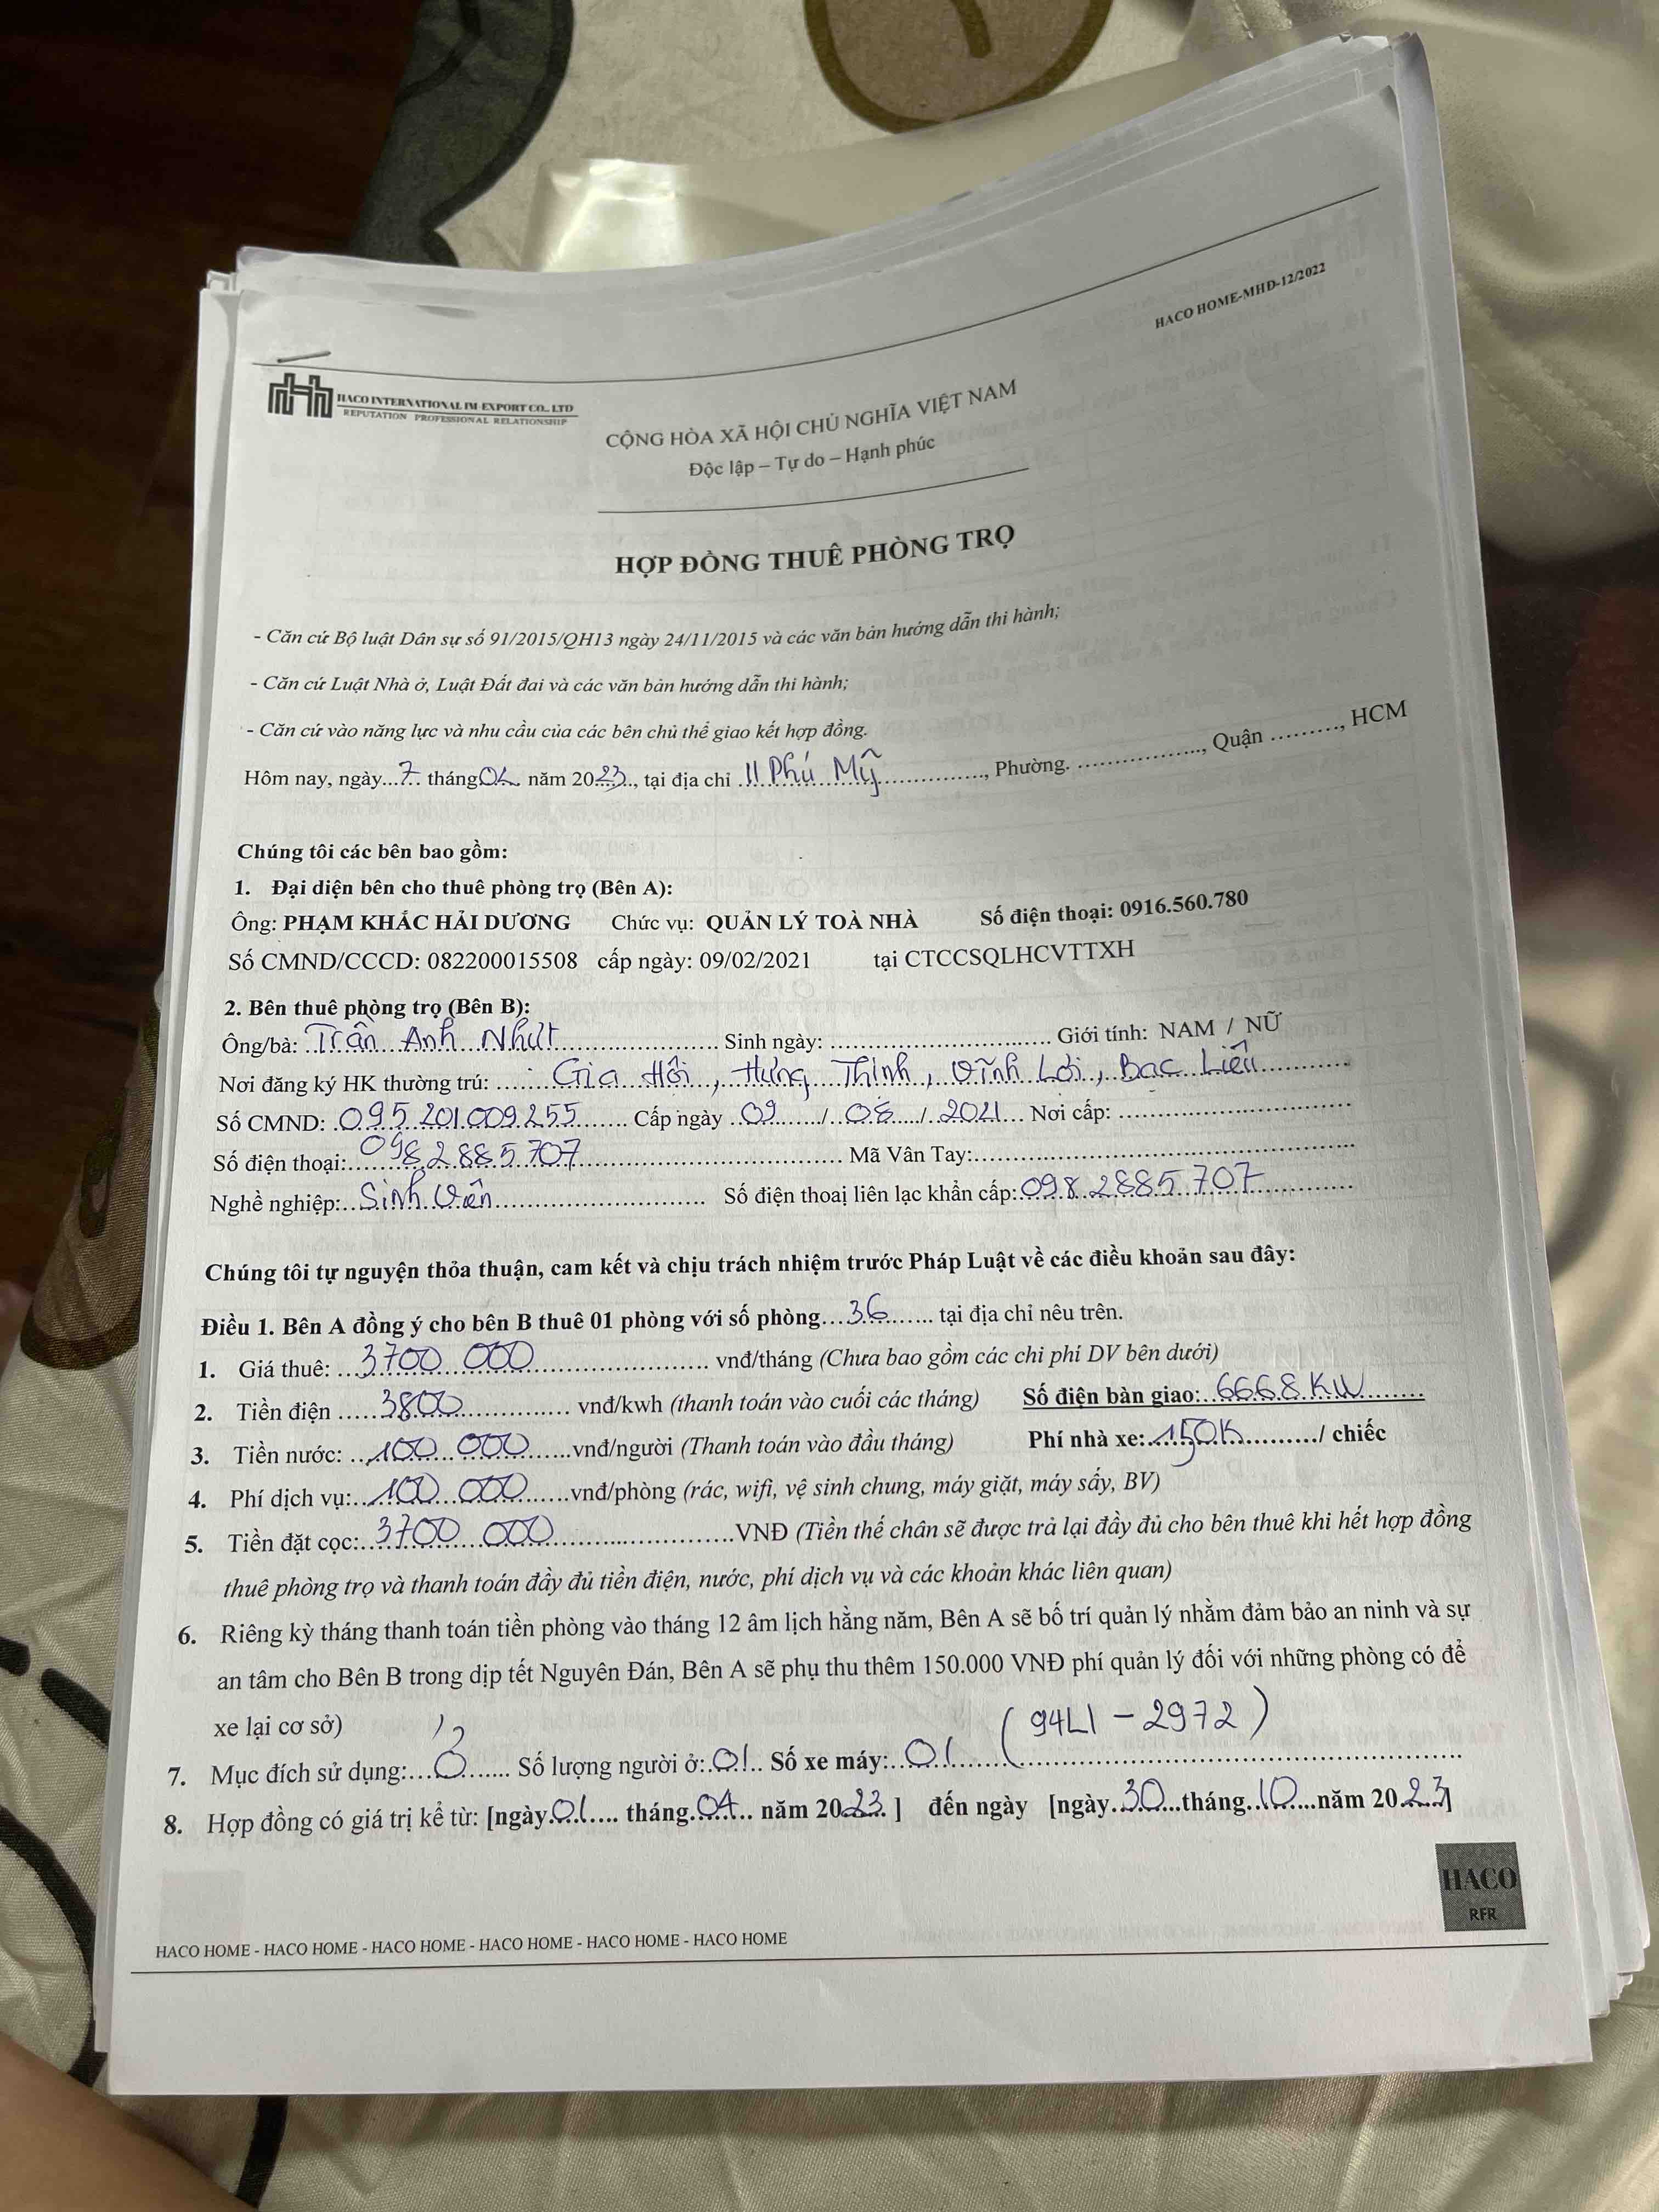 HACO HOME-MHD-12/2022
HACO INTERNATIONAL IM-EXPORT CO., LTD
REPUTATION PROFESSIONAL RELATIONSHIP
CỘNG HÒA XÃ HỘI CHỦ NGHĨA VIỆT NAM
Độc lập – Tự do – Hạnh phúc
HỢP ĐỒNG THUÊ PHÒNG TRỌ
- Căn cứ Bộ luật Dân sự số 91/2015/QH13 ngày 24/11/2015 và các văn bản hướng dẫn thi hành;
- Căn cứ Luật Nhà ở, Luật Đất đai và các văn bản hướng dẫn thi hành;
- Căn cứ vào năng lực và nhu cầu của các bên chủ thể giao kết hợp đồng.
Hôm nay, ngày...7.. tháng04 năm 20.23.., tại địa chỉ 11 Phú Mỹ..............., Phường. .................., Quận .........., HCM
Chúng tôi các bên bao gồm:
1. Đại diện bên cho thuê phòng trọ (Bên A):
Ông: PHẠM KHẮC HẢI DƯƠNG Chức vụ: QUẢN LÝ TOÀ NHÀ Số điện thoại: 0916.560.780
Số CMND/CCCD: 082200015508 cấp ngày: 09/02/2021 tại CTCCSQLHCVTTXH
2. Bên thuê phòng trọ (Bên B):
Ông/bà: Trần Anh Nhựt.................... Sinh ngày: .............................. Giới tính: NAM / NỮ
Nơi đăng ký HK thường trú: ...... Gia Hội, Hưng Thịnh, Vĩnh Lợi, Bạc Liêu............
Số CMND: 095 201 009 255....... Cấp ngày ..09...../..08..../..2021... Nơi cấp: ................................
Số điện thoại:.....098 2885 707................................ Mã Vân Tay:....................................................
Nghề nghiệp:..Sinh Viên............................. Số điện thoại liên lạc khẩn cấp:098 2885 707............
Chúng tôi tự nguyện thỏa thuận, cam kết và chịu trách nhiệm trước Pháp Luật về các điều khoản sau đây:
Điều 1. Bên A đồng ý cho bên B thuê 01 phòng với số phòng...36....... tại địa chỉ nêu trên.
1. Giá thuê: ...3700 000........................ vnđ/tháng (Chưa bao gồm các chi phí DV bên dưới)
2. Tiền điện .....3800.............. vnđ/kwh (thanh toán vào cuối các tháng) Số điện bàn giao:..6668 KW........
3. Tiền nước: ...100 000.....vnđ/người (Thanh toán vào đầu tháng) Phí nhà xe:...150K........../ chiếc
4. Phí dịch vụ:...100 000.....vnđ/phòng (rác, wifi, vệ sinh chung, máy giặt, máy sấy, BV)
5. Tiền đặt cọc:..3700 000........................VNĐ (Tiền thế chân sẽ được trả lại đầy đủ cho bên thuê khi hết hợp đồng
thuê phòng trọ và thanh toán đầy đủ tiền điện, nước, phí dịch vụ và các khoản khác liên quan)
6. Riêng kỳ tháng thanh toán tiền phòng vào tháng 12 âm lịch hằng năm, Bên A sẽ bố trí quản lý nhằm đảm bảo an ninh và sự
an tâm cho Bên B trong dịp tết Nguyên Đán, Bên A sẽ phụ thu thêm 150.000 VNĐ phí quản lý đối với những phòng có để
xe lại cơ sở)
7. Mục đích sử dụng:...Ở...... Số lượng người ở:.01... Số xe máy:..01....(94L1 - 2972)
8. Hợp đồng có giá trị kể từ: [ngày.01.... tháng.04... năm 20.23. ] đến ngày [ngày.30....tháng..10...năm 20.23.]
HACO
RFR
HACO HOME - HACO HOME - HACO HOME - HACO HOME - HACO HOME - HACO HOME